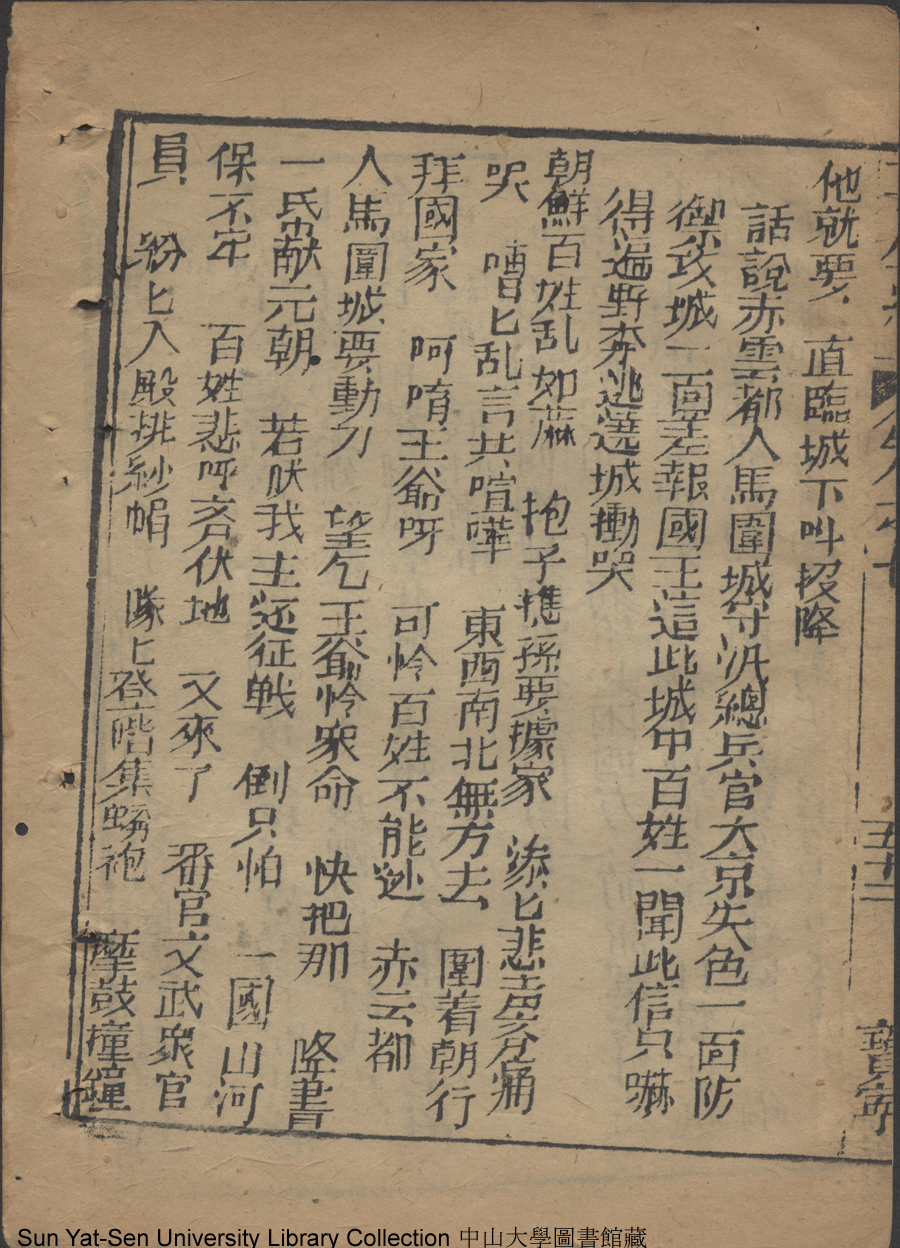 他就要 直臨城下叫投降
話說赤雲都人馬圍城守汛總兵官大京失色一面防
禦攻城一面差報國王這此城中百姓一聞此信只嚇
得遍野奔逃選城慟哭
朝鮮百姓乱如麻 抱子携孫要據家 添匕悲声旁痛
哭 嘈匕乱言共喧嘩 東西南北無方去 圍着朝行
拜國家 呵唷王爺呀 可怜百姓不能逃 赤云都
人馬圍城要動刀 望乞王爺怜衆命 快把那 降書
一帋献元朝 若肰我主还征戦 倒只怕 一國山河
保不牢 百姓悲呼齐伏地 又來了 番官文武衆官
員 紛匕入殿排紗帽 隊上登階集蟒袍 擊鼓撞鐘
五十二 寶寧
Sun Yat-Sen University Library Collection 中山大學圖書館藏